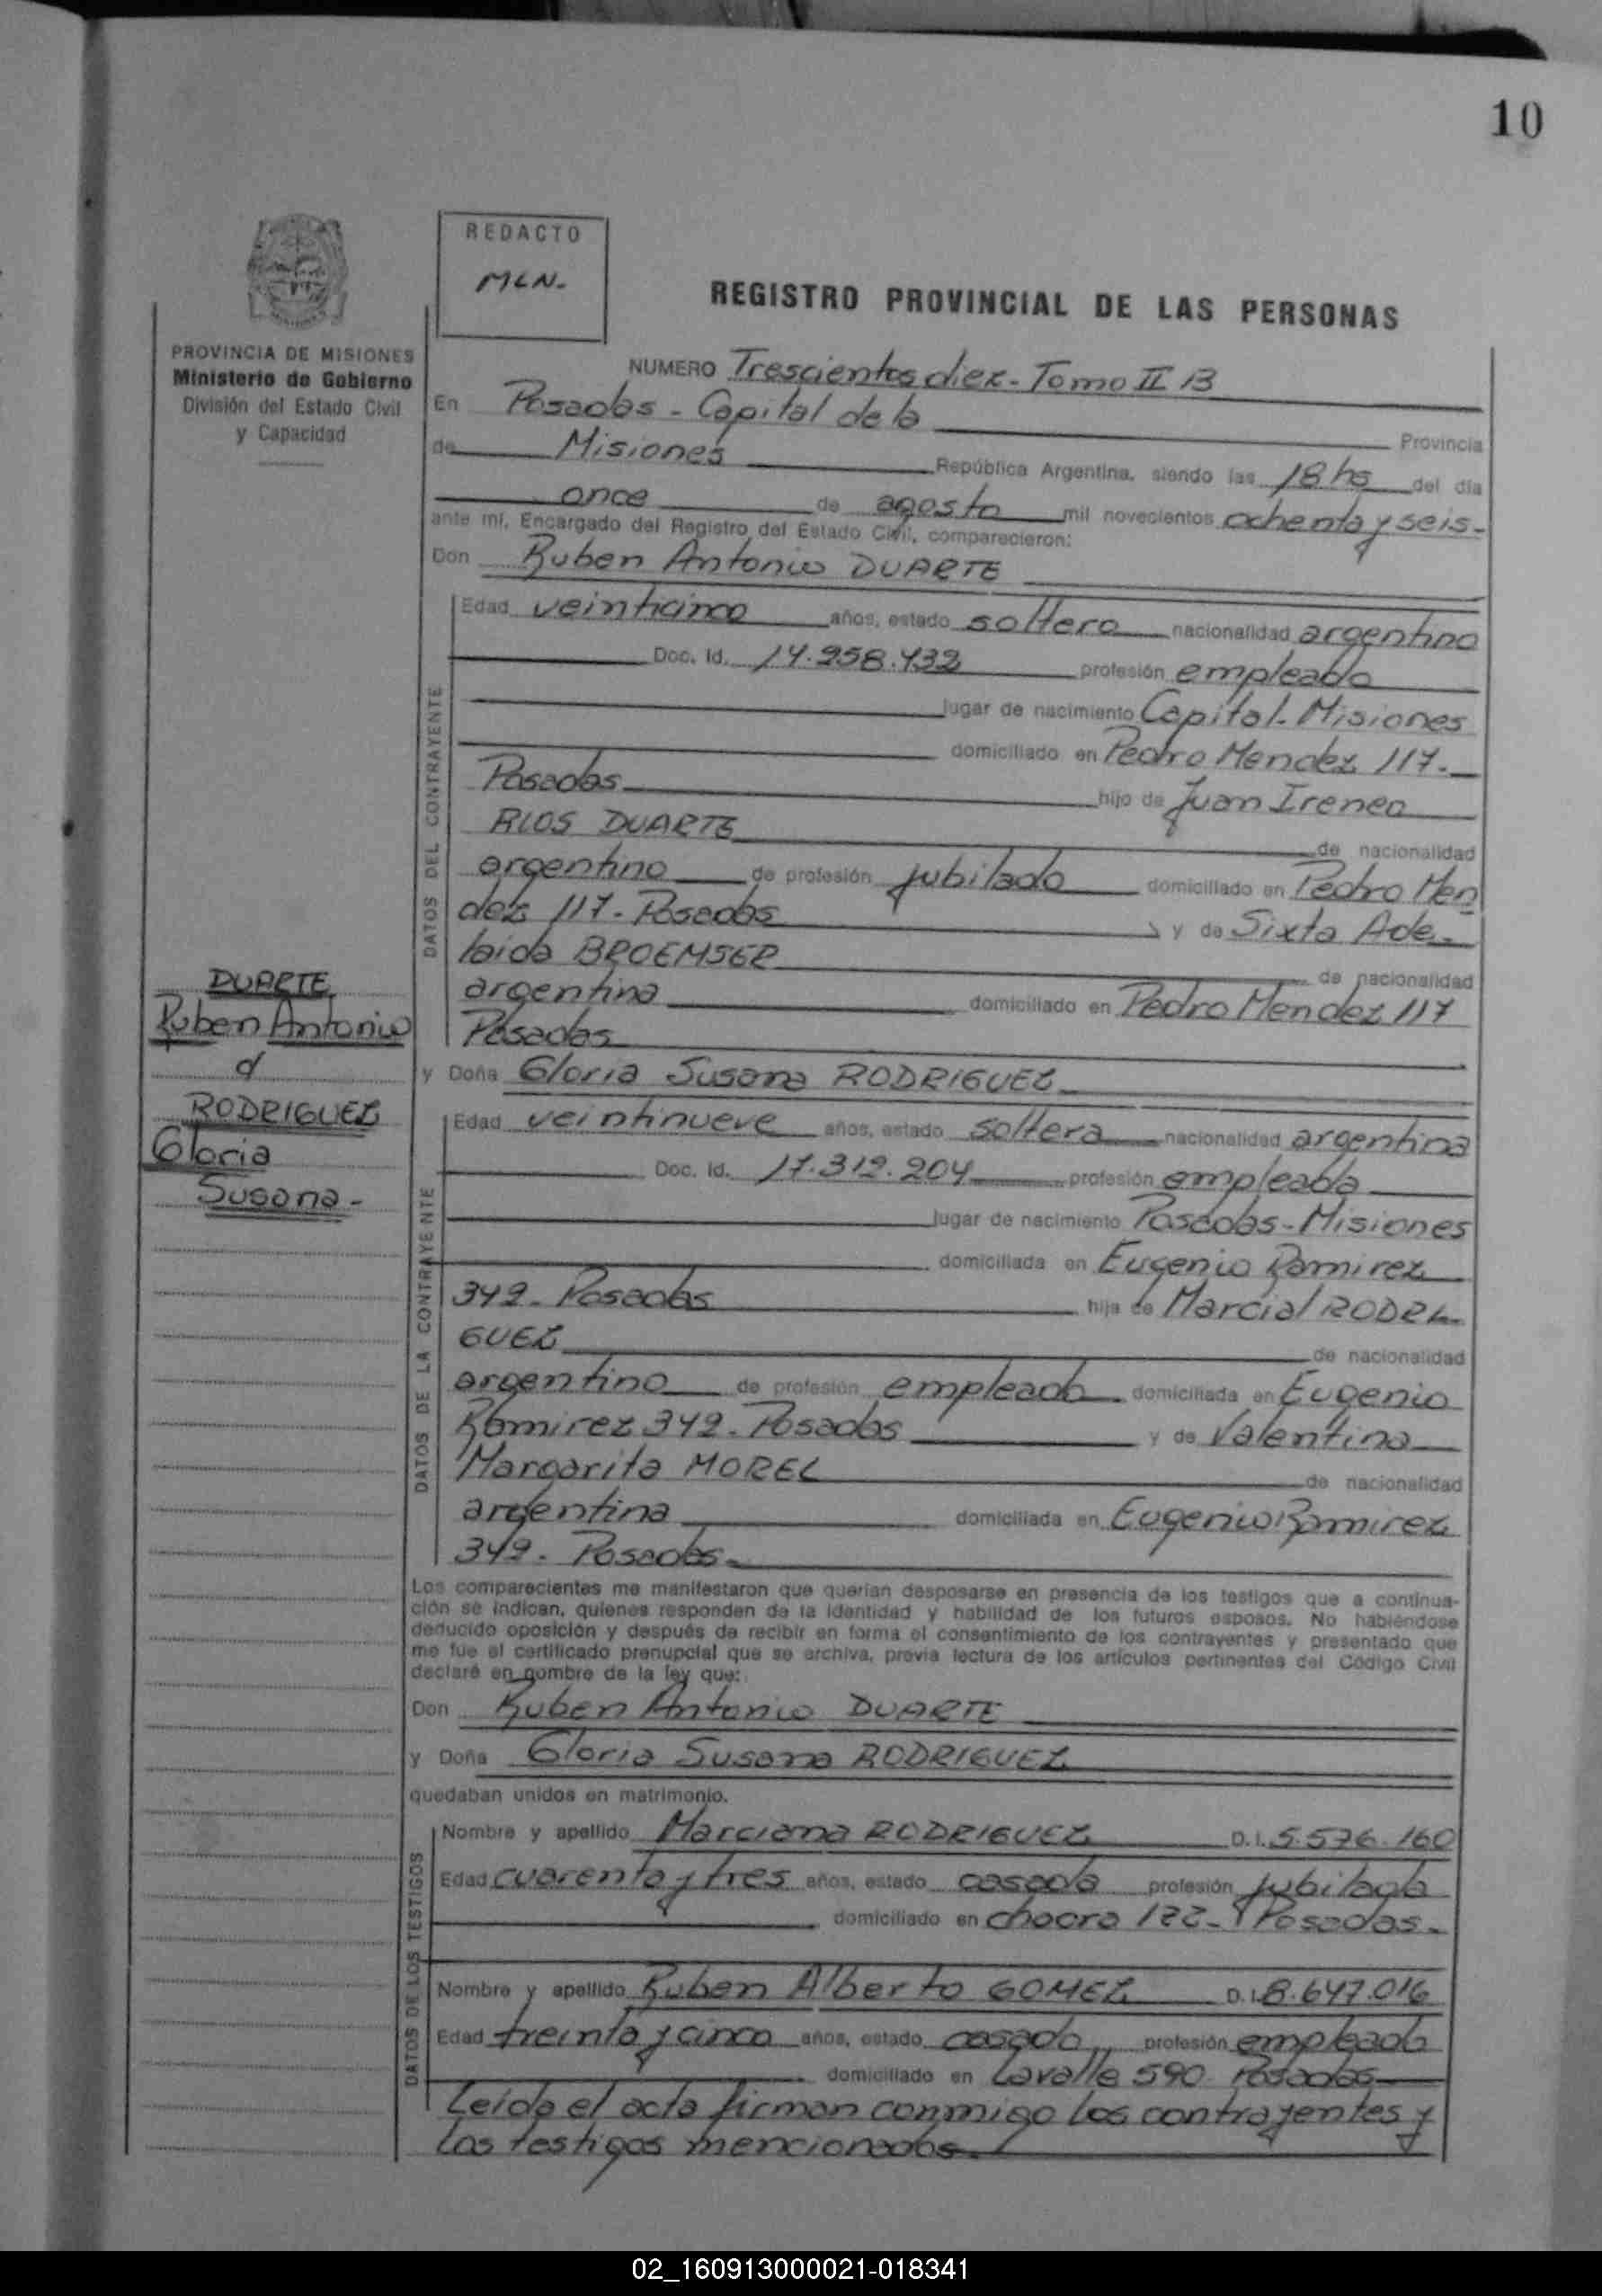 10
REDACTO
MLN.
REGISTRO PROVINCIAL DE LAS PERSONAS
PROVINCIA DE MISIONES
Ministerio de Gobierno
División del Estado Civil
y Capacidad
NUMERO Trescientos diez - Tomo II B
En Posadas - Capital de la Provincia
de Misiones República Argentina, siendo las 18 hs del día
once de agosto mil novecientos ochenta y seis -
ante mí, Encargado del Registro del Estado Civil, comparecieron:
Don Ruben Antonio DUARTE
Edad veinticinco años, estado soltero nacionalidad argentino
Doc. Id. 14.258.432 profesión empleado
lugar de nacimiento Capital - Misiones
domiciliado en Pedro Mendez 117 -
Posadas hijo de Juan Ireneo
RIOS DUARTE de nacionalidad
argentino de profesión jubilado domiciliado en Pedro Men
dez 117 - Posadas y de Sixta Ade-
laida BROEMSER de nacionalidad
argentina domiciliado en Pedro Mendez 117
Posadas
y Doña Gloria Susana RODRIGUEZ
Edad veintinueve años, estado soltera nacionalidad argentina
Doc. Id. 17.312.204 profesión empleada
lugar de nacimiento Posadas - Misiones
domiciliada en Eugenio Ramirez
349 - Posadas hija de Marcial RODRI-
GUEZ de nacionalidad
argentino de profesión empleado domiciliada en Eugenio
Ramirez 349 - Posadas y de Valentina
Margarita MOREL de nacionalidad
argentina domiciliada en Eugenio Ramirez
349 - Posadas -
DATOS DEL CONTRAYENTE
DATOS DE LA CONTRAYENTE
DUARTE
Ruben Antonio
RODRIGUEZ
Gloria
Susana -
Los comparecientes me manifestaron que querían desposarse en presencia de los testigos que a continua-
ción se indican, quienes responden de la identidad y habilidad de los futuros esposos. No habiéndose
deducido oposición y después de recibir en forma el consentimiento de los contrayentes y presentado que
me fue el certificado prenupcial que se archiva, previa lectura de los artículos pertinentes del Código Civil
declaré en nombre de la ley que:
Don Ruben Antonio DUARTE
y Doña Gloria Susana RODRIGUEZ
quedaban unidos en matrimonio.
Nombre y apellido Marciana RODRIGUEZ D.I. 5.576.160
Edad cuarenta y tres años, estado casada profesión jubilada
domiciliado en chacra 122 - Posadas -
Nombre y apellido Ruben Alberto GOMEZ D.I. 8.647.016
Edad treinta y cinco años, estado casado profesión empleado
domiciliado en Lavalle 590 - Posadas
DATOS DE LOS TESTIGOS
Leída el acta firman conmigo los contrayentes y
los testigos mencionados.
02_160913000021-018341